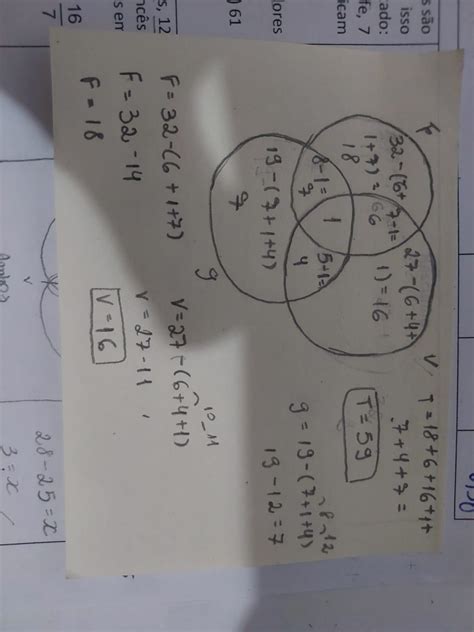 F
32-(6+
1+7)=
18
7-1=
6
27-(6+4+
1)=16
V
8-1=
7
1
5+1=
4
19-(7+1+4)
7
g
T=18+6+16+1+
7+4+7=
T=59
8 12
g=19-(7+1+4)
19-12=7
F=32-(6+1+7)
F=32-14
F=18
10 11
V=27-(6+4+1)
V=27-11
V=16
28-25=x
3=x
V
16
7
61
s são
isso
cado:
fe, 7
lores
icam
s, 12
ncês
s em